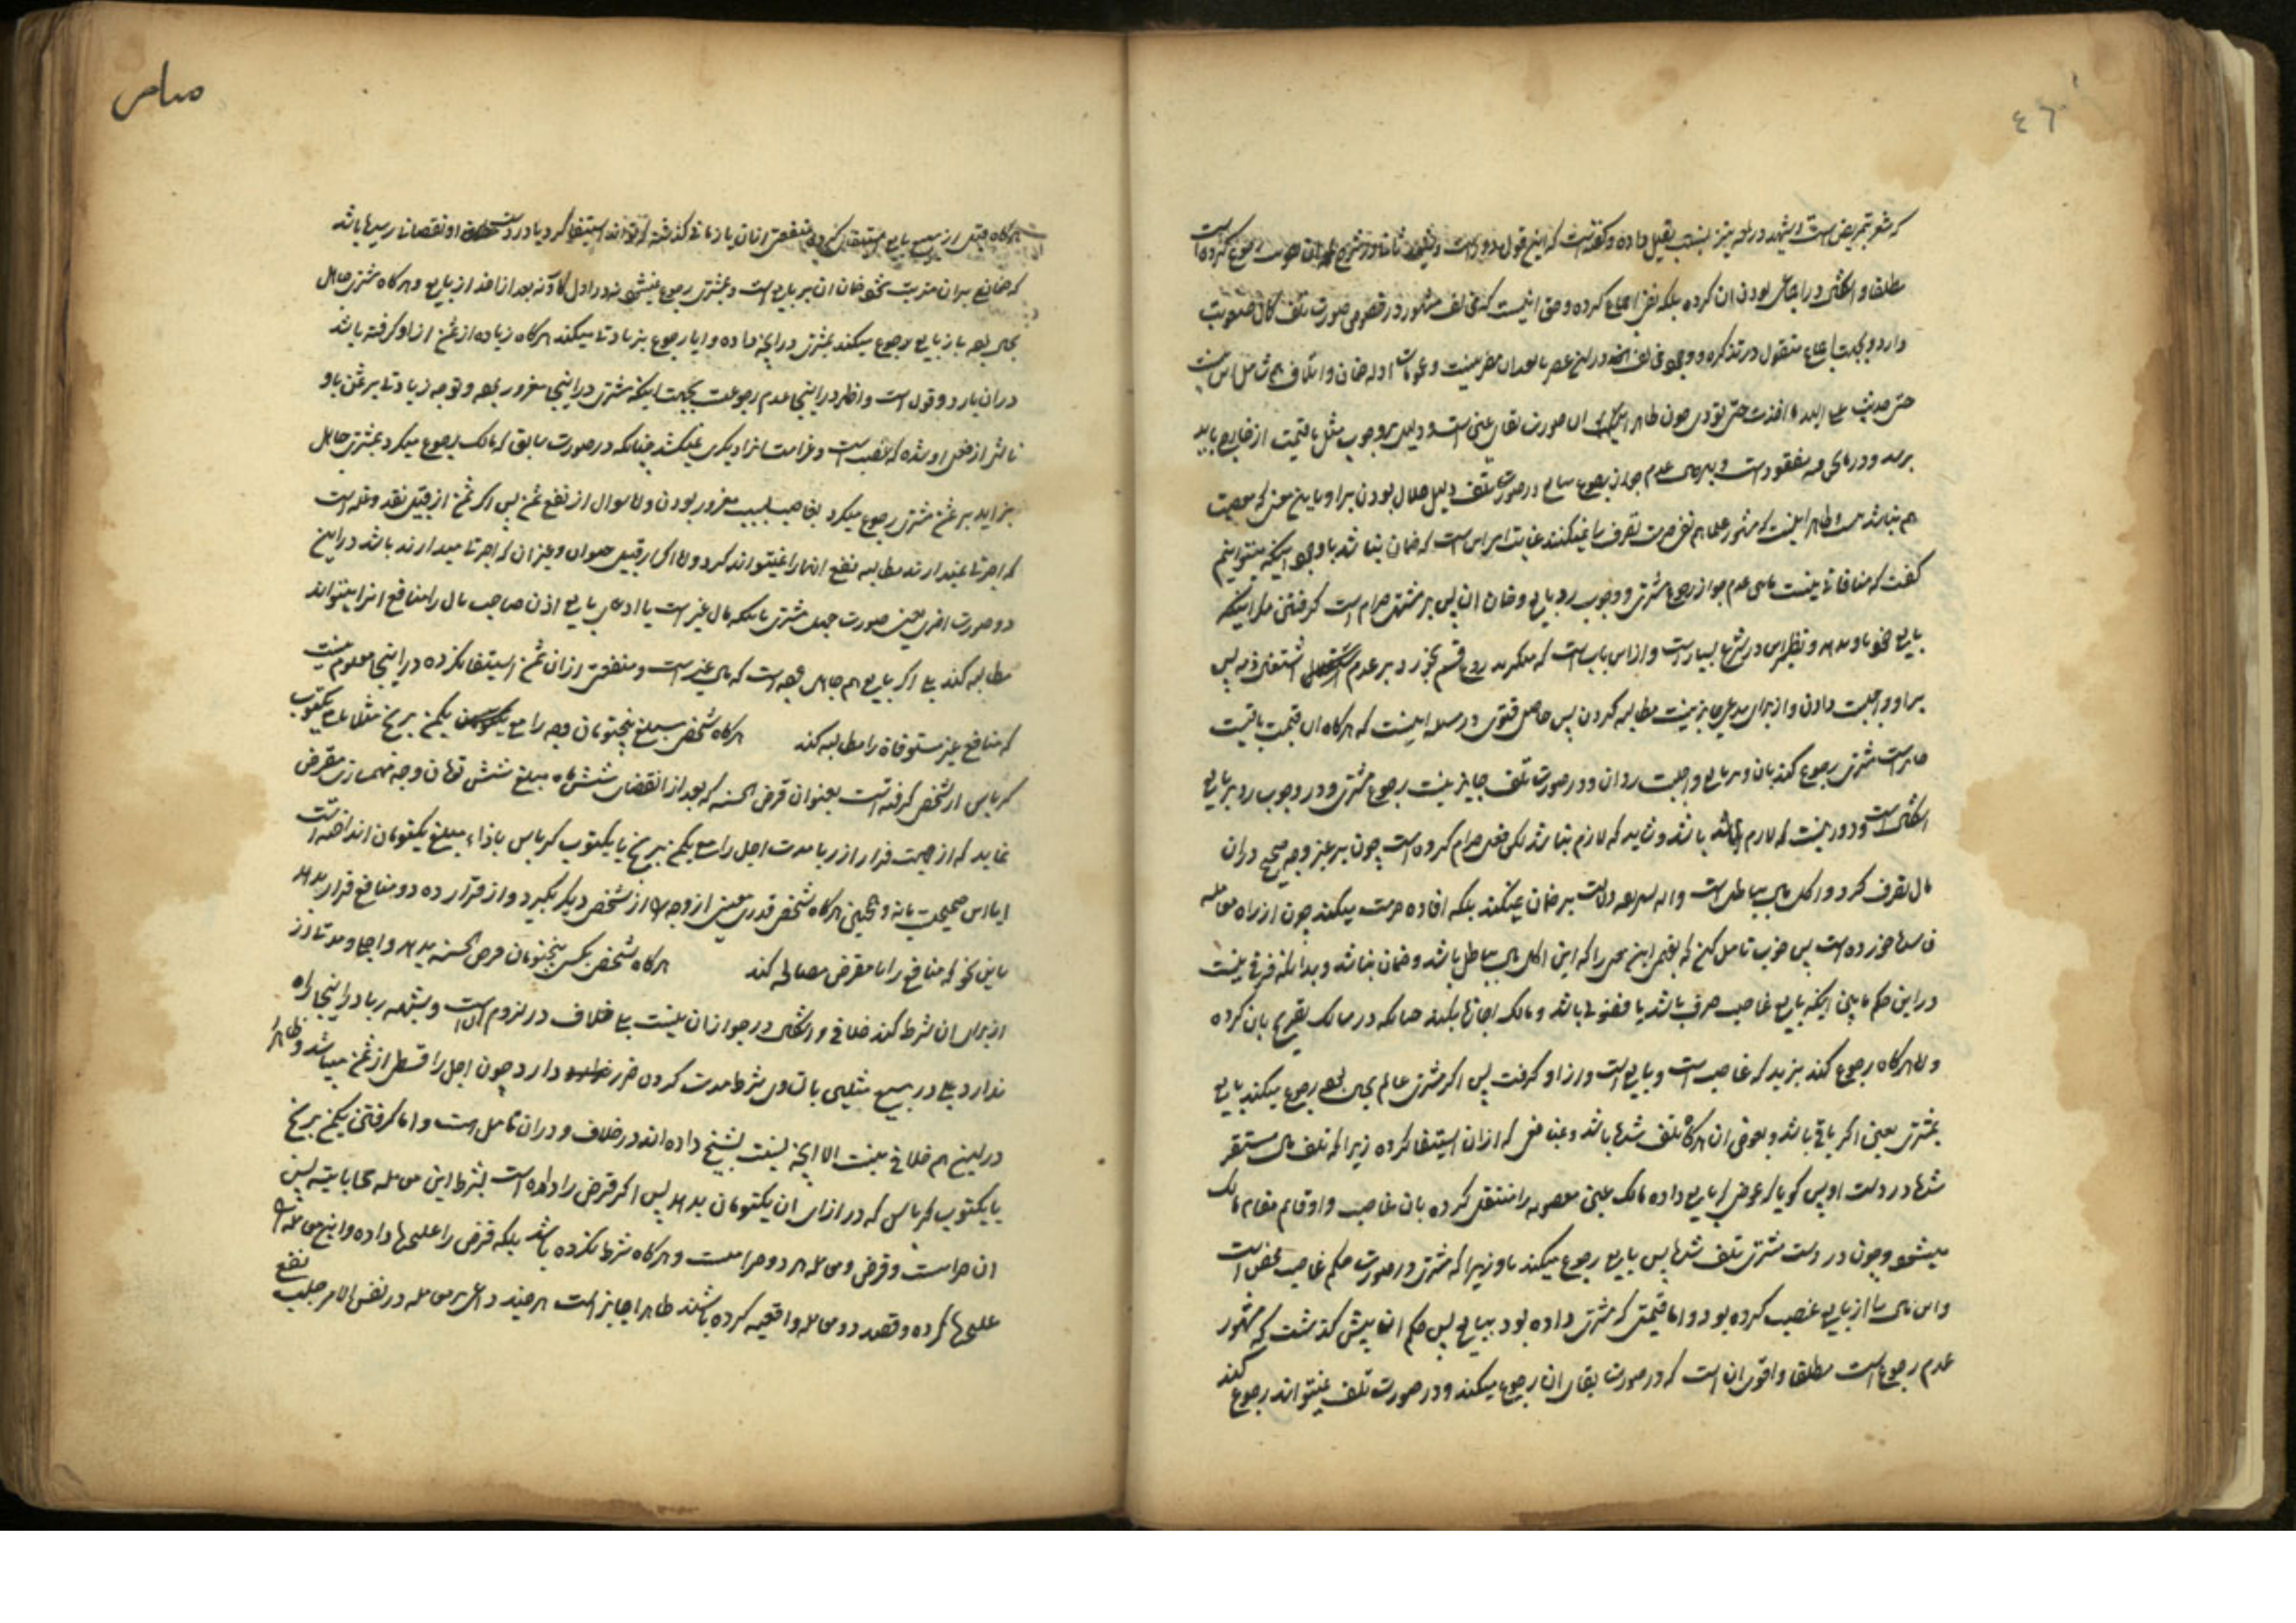 که مشعر بتمریض است و شهید در لمعه نیز نسبت بقیل داده و گفته است که این قول
مطلقا و اشکالی در اجماعی بودن آن کرده بلکه نقض اجماع کرده و حق اینست که مخالف مشهور در خصوص صورت تلف کمال صعوبت
دارد و بجهت اجماع منقول در تذکره و در این عصر ما بعد آن مضر نیست و ادله ضمان و اتلاف هم شامل این نیست
حتی حدیث علی الید ما اخذت حتی تودی چون ظاهر آن صورت بقای عین است و دلیل بر وجوب مثل یا قیمت از خارج باید
برسد و در مانحن فیه مفقود است و بر مدعی عدم جواز رجوع در صورت تلف دلیل حلال بودن بر او باین معنی که معصیت
هم نباشد نیست و ظاهر اینست که مشهور علما هم نفی حرمت تصرف را نمیکنند غایت امر این است که ضمان نباشد با وجود اینکه میتوانیم
گفت که منافات نیست مابین عدم جواز رجوع مشتری و وجوب رد بایع و ضمان آن پس بر مشتری حرام است گرفتن مگر اینکه
بایع خود باو بدهد و نظیر این در شرع بسیار است و از این باب است که منکر بدروغ قسم بخورد بر عدم اشتغال ذمه پس
بر او واجب است دادن و از برای مدعی جایز نیست مطالبه کردن پس حاصل فتوی در مسئله اینست که هرگاه آن قیمت باقیست
جایز است مشتری رجوع کند بآن و بر بایع واجب است رد آن و در صورت تلف جایز نیست رجوع مشتری و در وجوب رد بر بایع
اشکال است و دور نیست که لازم باشد و شاید که لازم نباشد لکن فعل حرام کرده است چون بر غیر وجه صحیح در آن
مال تصرف کرده و اکل مال بباطل است و آیه شریفه دلالت بر ضمان نمیکند بلکه افاده حرمت میکند چون از راه معامله
فاسده خورده است پس خوب تامل کن که بفهمی این معنی را که این اکل مال بباطل باشد و ضمان نباشد و بدانکه فرقی نیست
در این حکم مابین اینکه بایع غاصب صرف باشد یا فضولی باشد و مالک اجازه نکند چنانکه در مسالک تصریح بآن کرده
و اما هرگاه رجوع کند بزید که غاصب است و بایع است و از او گرفت پس اگر مشتری عالم بحال بوده رجوع میکند بایع
بمشتری بعین اگر باقی باشد و بعوض آن هرگاه تلف شده باشد و بمنافعی که از آن استیفا کرده زیرا که تلف مال مستقر
شده در دست او پس گویا که عوضی که بایع داده مالک عین مغصوبه را منتقل کرده بآن غاصب و او قایم مقام مالک
میشود و چون در دست مشتری تلف شده پس بایع رجوع میکند باو زیرا که مشتری در صورت حکم غاصب محض است
و این مال را از بایع غصب کرده بود و اما قیمتی که مشتری داده بود ببایع پس حکم آن پیش گذشت که مشهور
عدم رجوع است مطلقا و اقوی آن است که در صورت بقای آن رجوع میکند و در صورت تلف نمیتواند رجوع کند
هرگاه قبل از بیع بایع منفعتی از آن یا زمانی گذشته که تواند استیفا کرد یا در دست او نقصانی رسیده باشد
که ضمانی بر آن مترتب شود ضمان آن بر بایع است و بمشتری رجوع نمیشود نه در اول کار و نه بعد از اخذ از بایع و هرگاه مشتری جاهل
بحال بوده باز بایع رجوع میکند بمشتری در آنچه داده و آیا رجوع بزیادتی میکند هرگاه زیاده از ثمن از او گرفته باشد
در آن باز دو قول است و اظهر در اینجا عدم رجوع است بجهت اینکه مشتری در اینجا مغرور بوده و توجه زیادتی بر ثمن باو
ناشی از فعل او شده که غصب است و غرامت آنرا دیگری نمیکشد چنانکه در صورت سابق که مالک رجوع میکرد بمشتری جاهل
بزاید بر ثمن مشتری رجوع میکرد بغاصب بسبب مغرور بودن و اما سوال از نفع ثمن پس اگر ثمن از قبیل نقد و غله است
که اجرتی نمیدارند مطالبه نفع آنها را نمیتواند کرد و اما اگر از قبیل حیوان و غیر آن که اجرتی میدارند باشد در این
دو صورت اخری یعنی صورت جهل مشتری باینکه مال غیر است یا ادعای بایع اذن صاحب مال را منافع آنرا میتواند
مطالبه کند بلی اگر بایع هم جاهل بوده است که مال غیر است و منفعتی از آن ثمن استیفا نکرده در اینجا معلوم نیست
که منافع غیر مستوفاة را مطالبه کند هرگاه شخصی مبلغ پنجتومان وجه را مع یکمن برنج مثلا یا یکتوب
کرباس از شخصی گرفته است بعنوان قرض الحسنه که بعد از انقضای شش ماه مبلغ شش تومان وجه مهمسازی مقرض
نماید که از جهت فرار از ربا مدت اجل را مع یکمن برنج یا یکتوب کرباس بازاء مبلغ یکتومان انداخته است
آیا این صحیح است یا نه و همچنین هرگاه شخصی قدری معین از وجه را از شخص دیگر بگیرد و از قرار ده دو منافع قرار بدهد
باین نحو که منافع را با مقرض مصالحه کند هرگاه شخصی بکسی پنجتومان قرض الحسنه بدهد و اجل و مدتی از
از برای آن شرط کند خلافی و اشکالی در جواز آن نیست بلی خلاف در لزوم آن است و شبهه ربا در اینجا راه
ندارد بلی در بیع مثلین با تساوی شرط مدت کردن ضرر دارد چون اجل را قسطی از ثمن میباشد و ظاهرا
در این هم خلافی نیست الا آنچه نسبت بشیخ داده اند در خلاف و در آن تامل است و اما گرفتن یکمن برنج
یا یکتوب کرباس که در ازای آن یکتومان بدهد پس اگر قرض را داده است بشرط این معامله محاباتیه پس
آن حرام است و قرض و معامله هر دو حرام است و هرگاه شرط نکرده باشد بلکه قرض را علیحده داده و این معامله را
علیحده کرده و قصد دو معامله واقعیه کرده باشند ظاهرا جایز است هر چند داعی بر معامله در نفس الامر جلب نفع